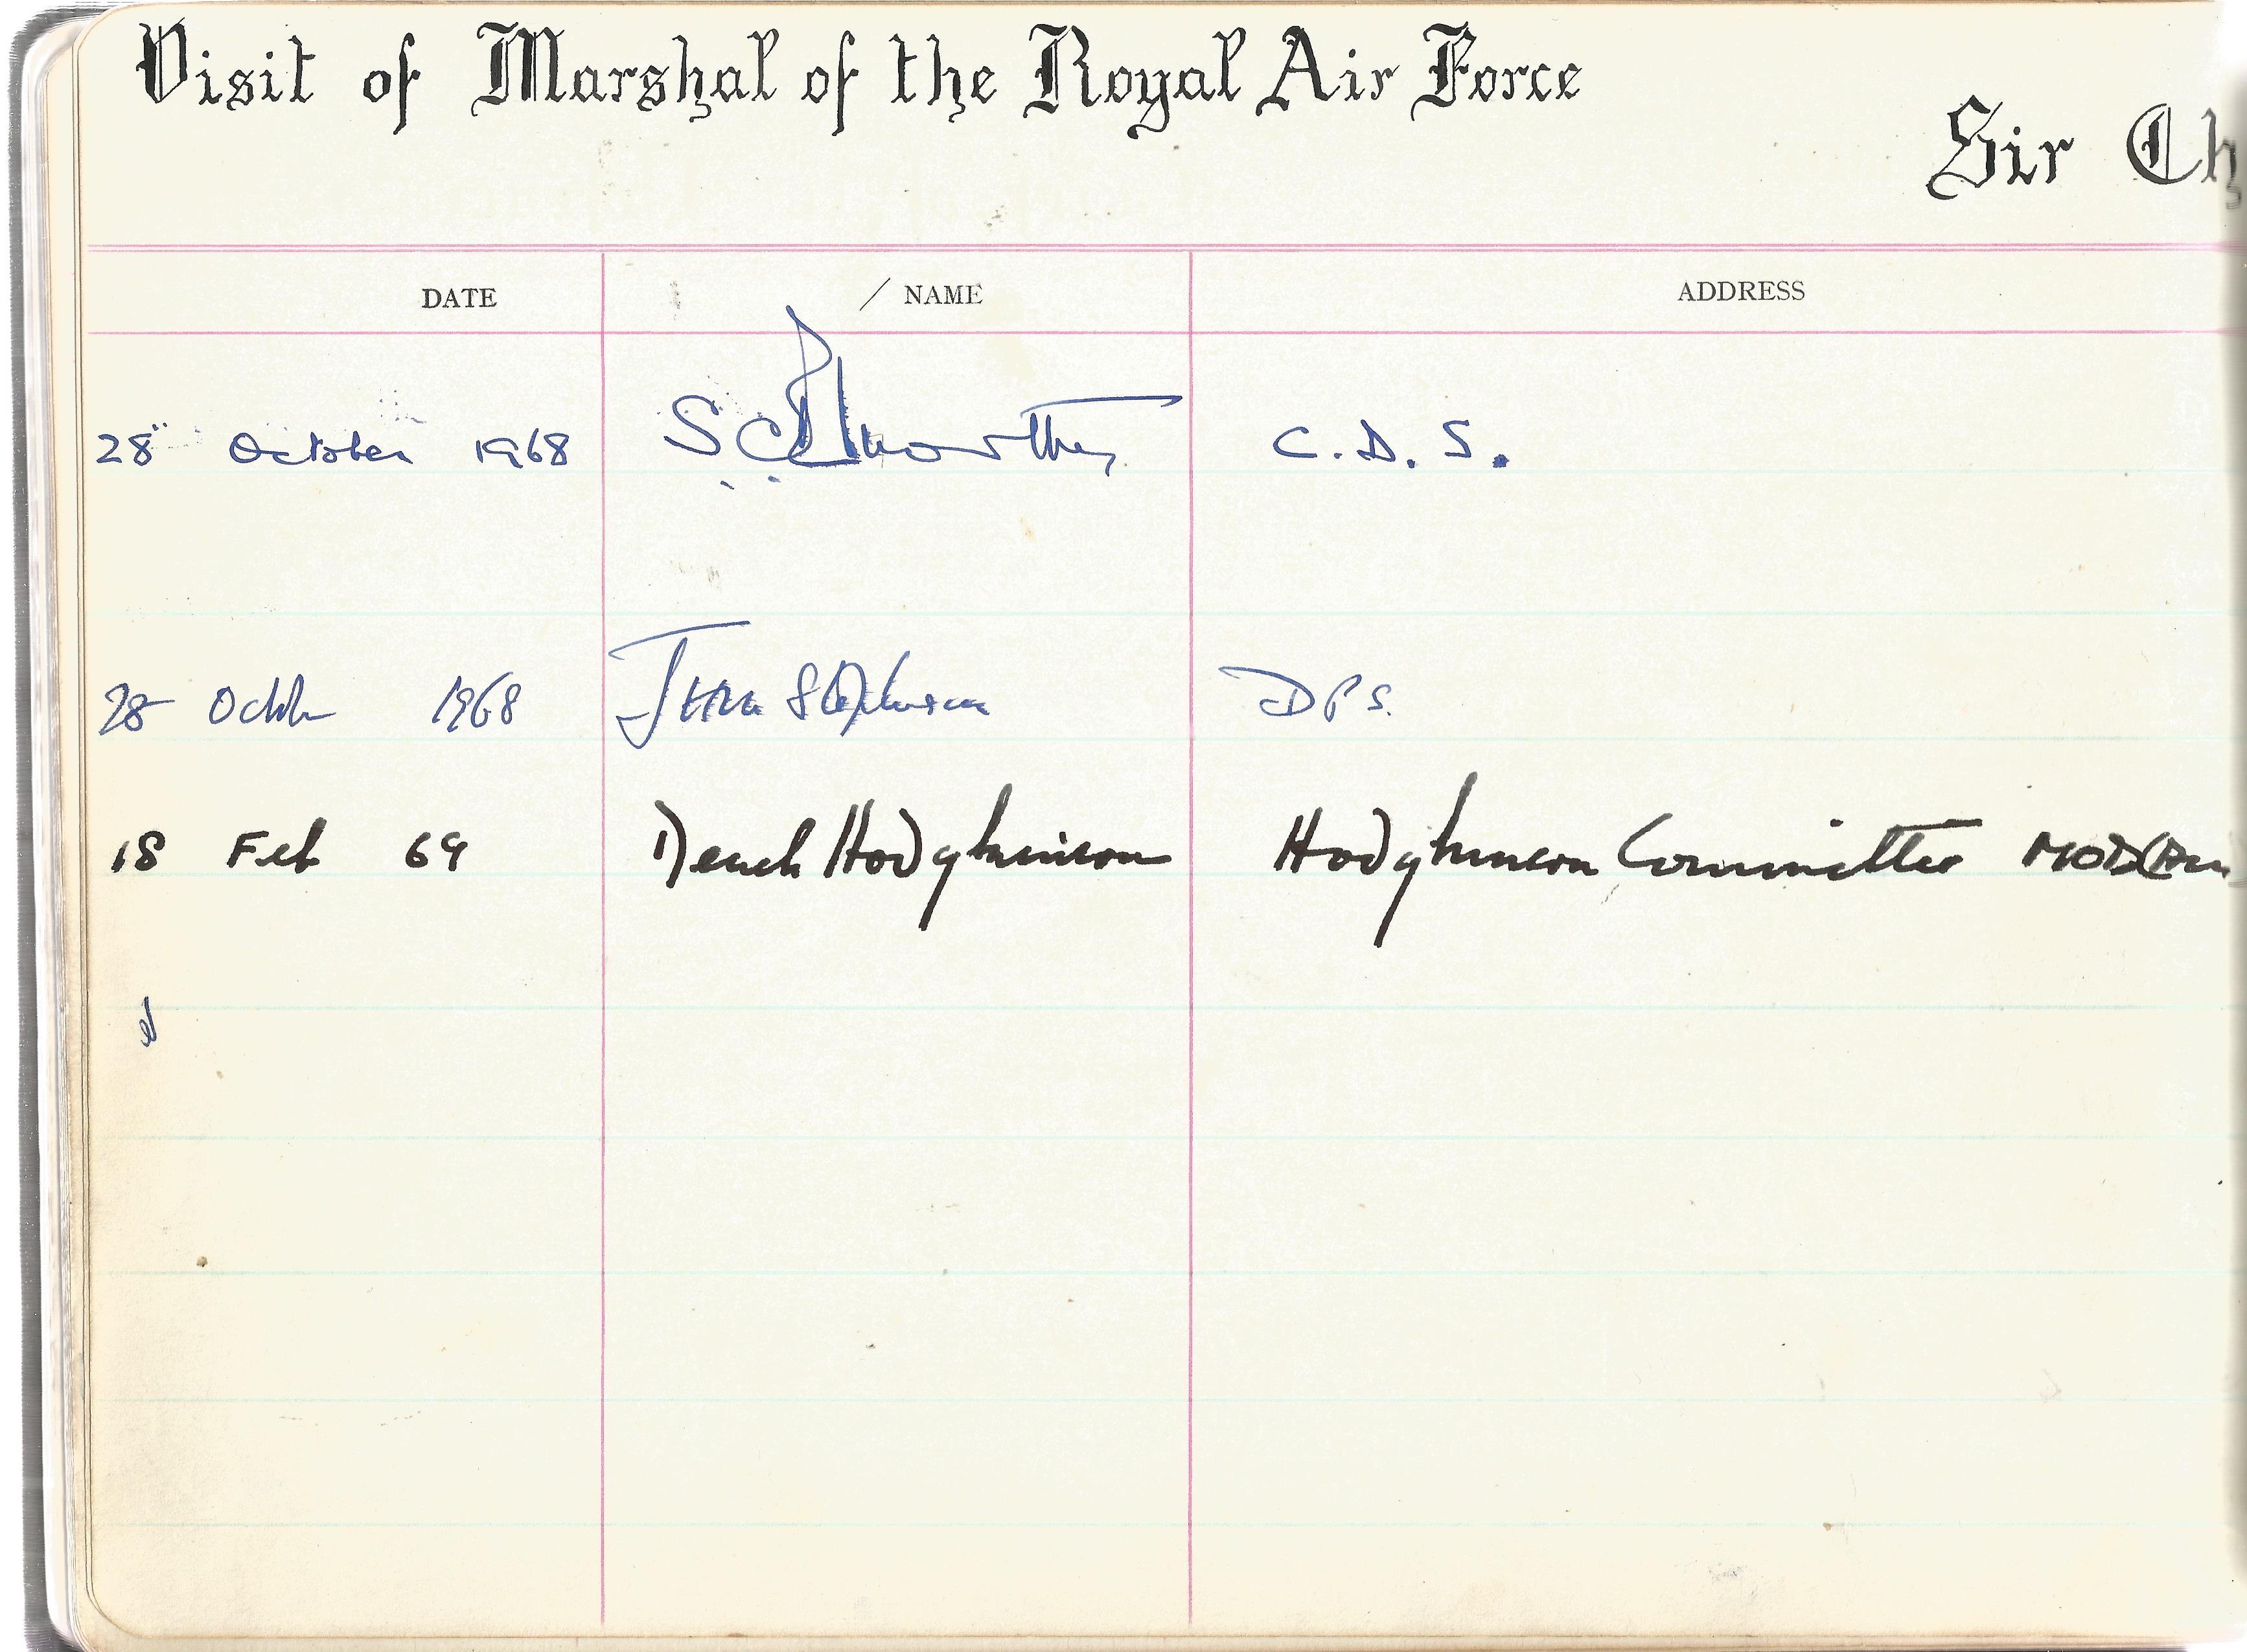 Visit of Marshal of the Royal Air Force
Sir Ch
DATE NAME ADDRESS
28 October 1968 S C Elworthy C. D. S.
28 1968 D P S.
18 Feb 69 Derek Hodgkinson Hodgkinson Committee MOD(Air